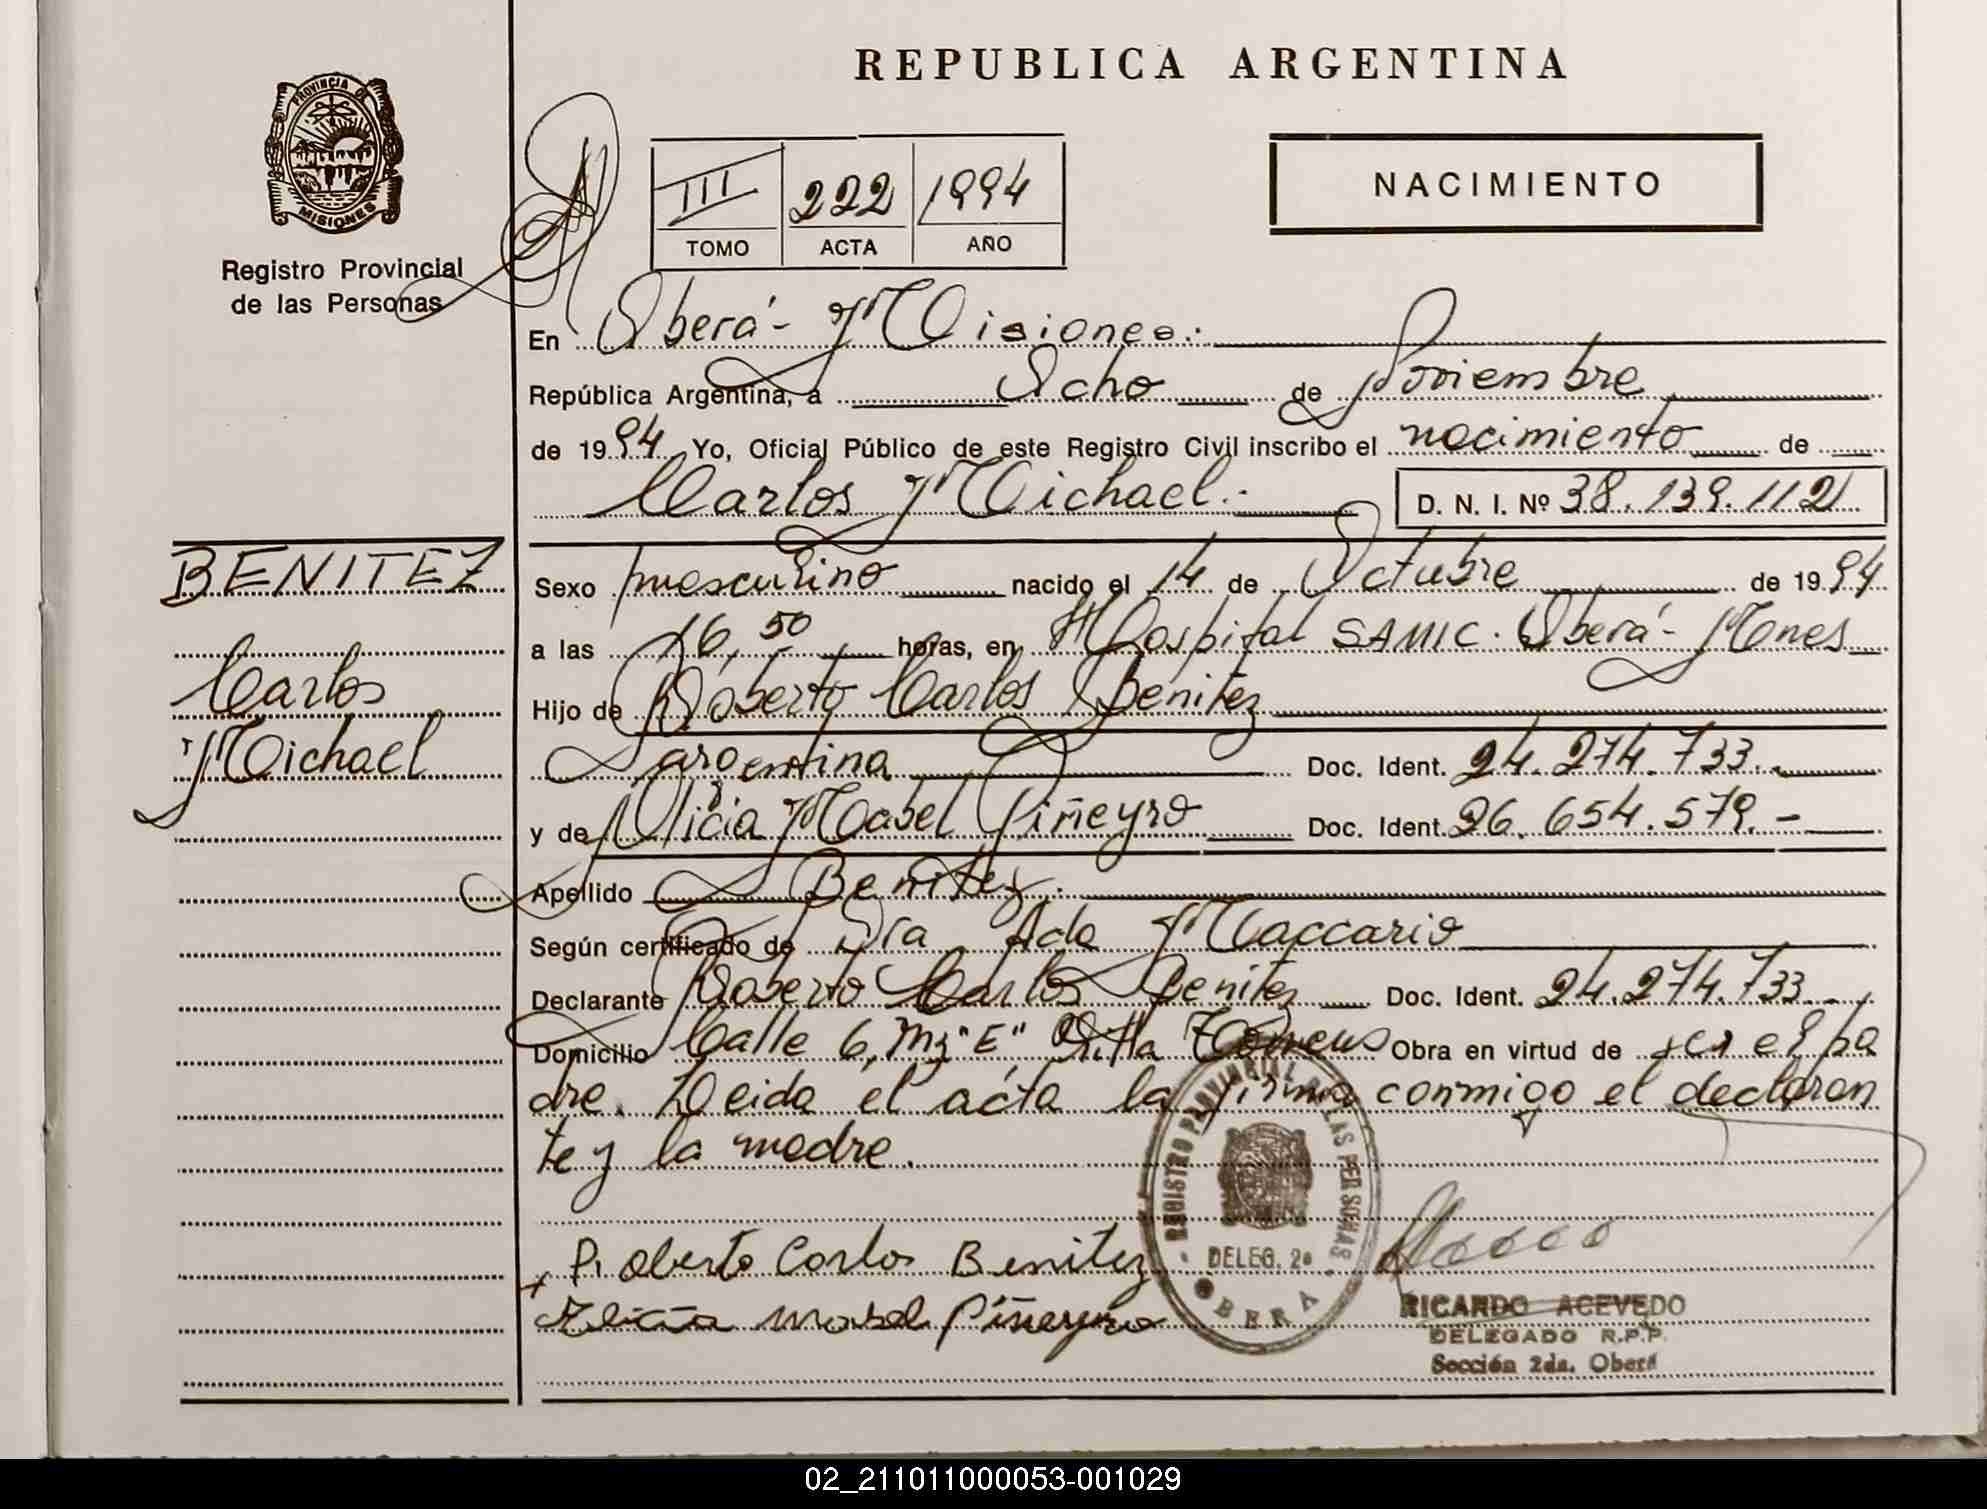 REPUBLICA ARGENTINA
PROVINCIA DE
MISIONES
Registro Provincial
de las Personas
III 222 1994
TOMO ACTA AÑO
NACIMIENTO
En Oberá - Misiones.
República Argentina, a Ocho de Noviembre
de 1994 Yo, Oficial Público de este Registro Civil inscribo el nacimiento de
Carlos Michael.- D. N. I. Nº 38.139.112
BENITEZ
Carlos
Michael
Sexo masculino nacido el 14 de Octubre de 1994
a las 16,50 horas, en Hospital SAMIC. Oberá - Mones
Hijo de Roberto Carlos Benitez
argentina Doc. Ident. 24.274.733.-
y de Alicia Mabel Piñeyro Doc. Ident. 26.654.579.-
Apellido Benitez.
Según certificado de Dra Ada Maccario
Declarante Roberto Carlos Benitez Doc. Ident. 24.274.733.-
Domicilio Calle 6, Mz "E", Villa Obra en virtud de ser el pa
dre. Leida el acta la firma conmigo el declaran
te y la madre.
REGISTRO PROVINCIAL DE LAS PERSONAS
DELEG. 2ª
OBERA
Roberto Carlos Benitez
Alicia Mabel Piñeyro
RICARDO ACEVEDO
DELEGADO R.P.P.
Sección 2da. Oberá
02_211011000053-001029